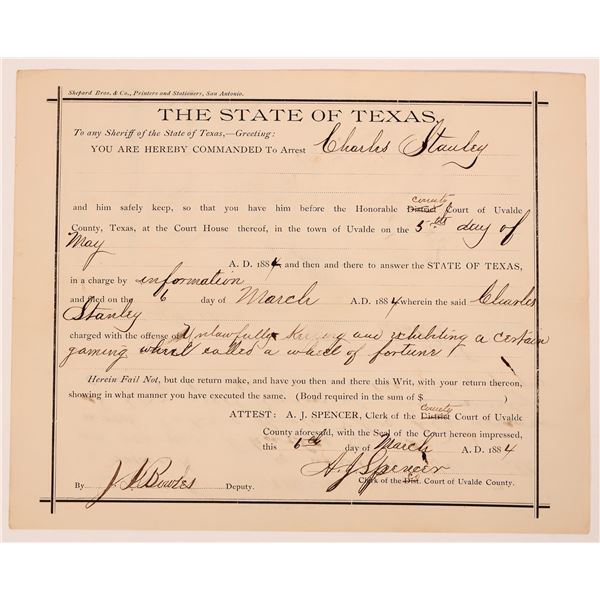 Shepard Bros. & Co., Printers and Stationers, San Antonio.
THE STATE OF TEXAS,
To any Sheriff of the State of Texas,—Greeting:
YOU ARE HEREBY COMMANDED To Arrest Charles Stanley
county
and him safely keep, so that you have him before the Honorable District Court of Uvalde
County, Texas, at the Court House thereof, in the town of Uvalde on the 5th day of
May A. D. 1884 and then and there to answer the STATE OF TEXAS,
in a charge by information
and filed on the 6 day of March A.D. 1884 wherein the said Charles
Stanley
charged with the offense of Unlawfully Keeping and exhibiting a certain
gaming wheel called a wheel of fortune
Herein Fail Not, but due return make, and have you then and there this Writ, with your return thereon,
showing in what manner you have executed the same. (Bond required in the sum of $ )
County
ATTEST: A. J. SPENCER, Clerk of the District Court of Uvalde
County aforesaid, with the Seal of the Court hereon impressed,
this 6th day of March A. D. 1884
A J Spencer
By J. Bowles Deputy. Clerk of the Dist. Co Court of Uvalde County.